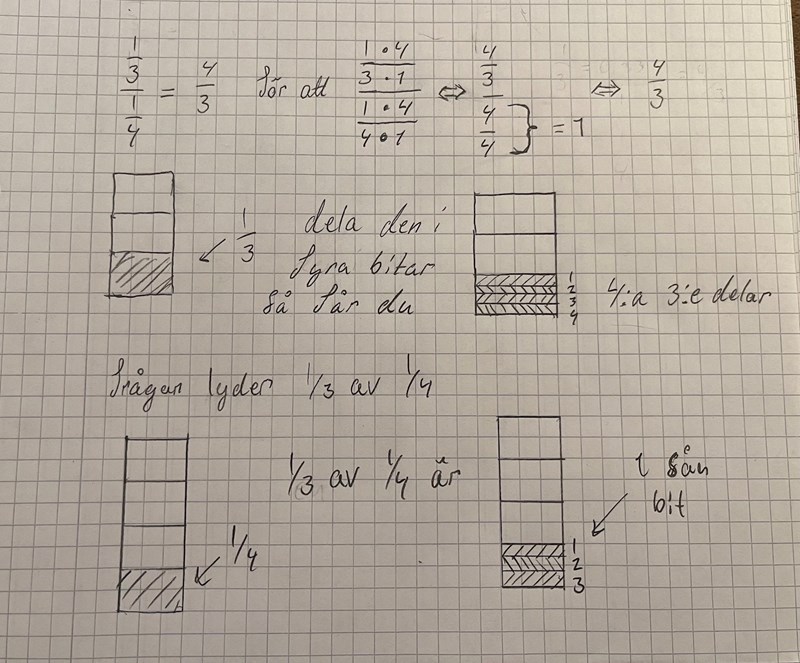 1/3 / 1/4 = 4/3 för att (1·4)/(3·1) / (1·4)/(4·1) ⇔ 4/3 / 4/4 } = 1 ⇔ 4/3
1/3 dela den i
fyra bitar
så får du
1
2
3
4
4:a 3:e delar
frågan lyder 1/3 av 1/4
1/3 av 1/4 är
1 sån
bit
1/4
1
2
3